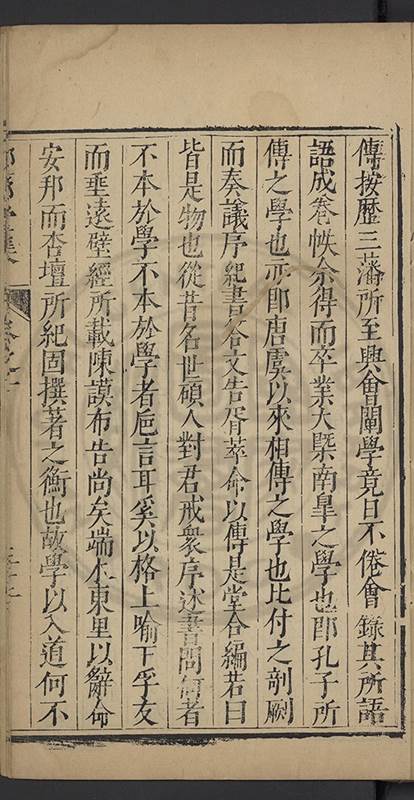 傳按歷三藩所至興會闡學竟日不倦會錄其所語
語成卷帙余得而卒業大槩南皐之學也即孔子所
傳之學也亦即唐虞以來相傳之學也比付之剞劂
而奏議序紀書答文告胥萃命以傳是堂合編若曰
皆是物也從昔名世碩人對君戒衆序述書問何者
不本於學不本於學者巵言耳奚以格上喻下孚友
而垂遠壁經所載陳謨布告尚矣端木東里以辭命
安邦而杏壇所紀固撰著之衡也故學以入道何不